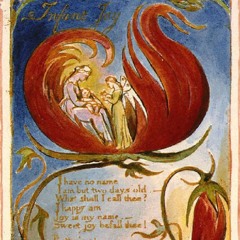 Infant Joy
I have no name
I am but two days old—
What shall I call thee?
I happy am
Joy is my name—
Sweet joy befall thee!